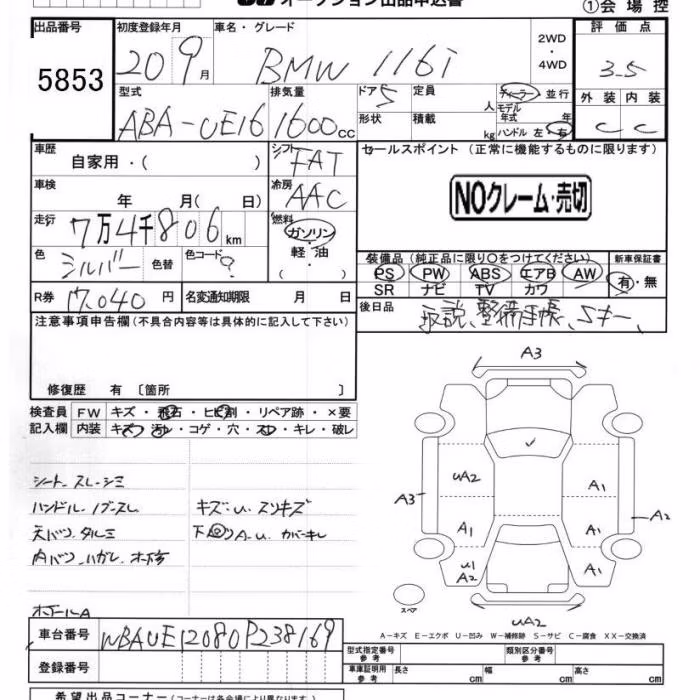 オークション出品申込書
①会場控
出品番号 初度登録年月 車名・グレード 評価点
5853 20 9月 BMW 116i 2WD・4WD 3.5
型式 排気量 ドア 定員 ディーラー・並行
ABA-UE16 1600cc 5 人 モデル年式 年
形状 積載 kg ハンドル 左・右
外装 内装
C C
車歴 シフト セールスポイント (正常に機能するものに限ります)
自家用・( ) FAT
車検 冷房
年 月( 日) AAC
NOクレーム・売切
走行 燃料
7万4千806km ガソリン・軽油・( )
色 シルバー 色替 色コード ?
装備品 (純正品に限り○をつけてください) 新車保証書
PS PW ABS エアB AW 有・無
SR ナビ TV カワ
R券 17,040円 名変通知期限 月 日
後日品 取説、整備手帳、Sキー、
注意事項申告欄(不具合内容等は具体的に記入して下さい)
修復歴 有 〔箇所 〕
検査員 FW キズ・飛石・ヒビ割・リペア跡・×要
記入欄 内装 キズ・汚れ・コゲ・穴・スレ・キレ・破レ
シート・スレ・シミ
ハンドル・ノブ・スレ キズ・U・スリキズ
天バリ タルミ 下回り A-U カバーキレ
内バリ ハガレ
ホイールA
A3
UA2 A1
A3 A2
A1 A1
U1 A2 A1
スペア
UA2
A-キズ E-エクボ U-凹み W-補修跡 S-サビ C-腐食 XX-交換済
車台番号 WBAUE12080P238169
登録番号
型式指定番号 参考 類別区分番号 参考
車庫証明用 参考 長さ cm 幅 cm 高さ cm
希望出品コーナー(コーナーは各会場により異なります)